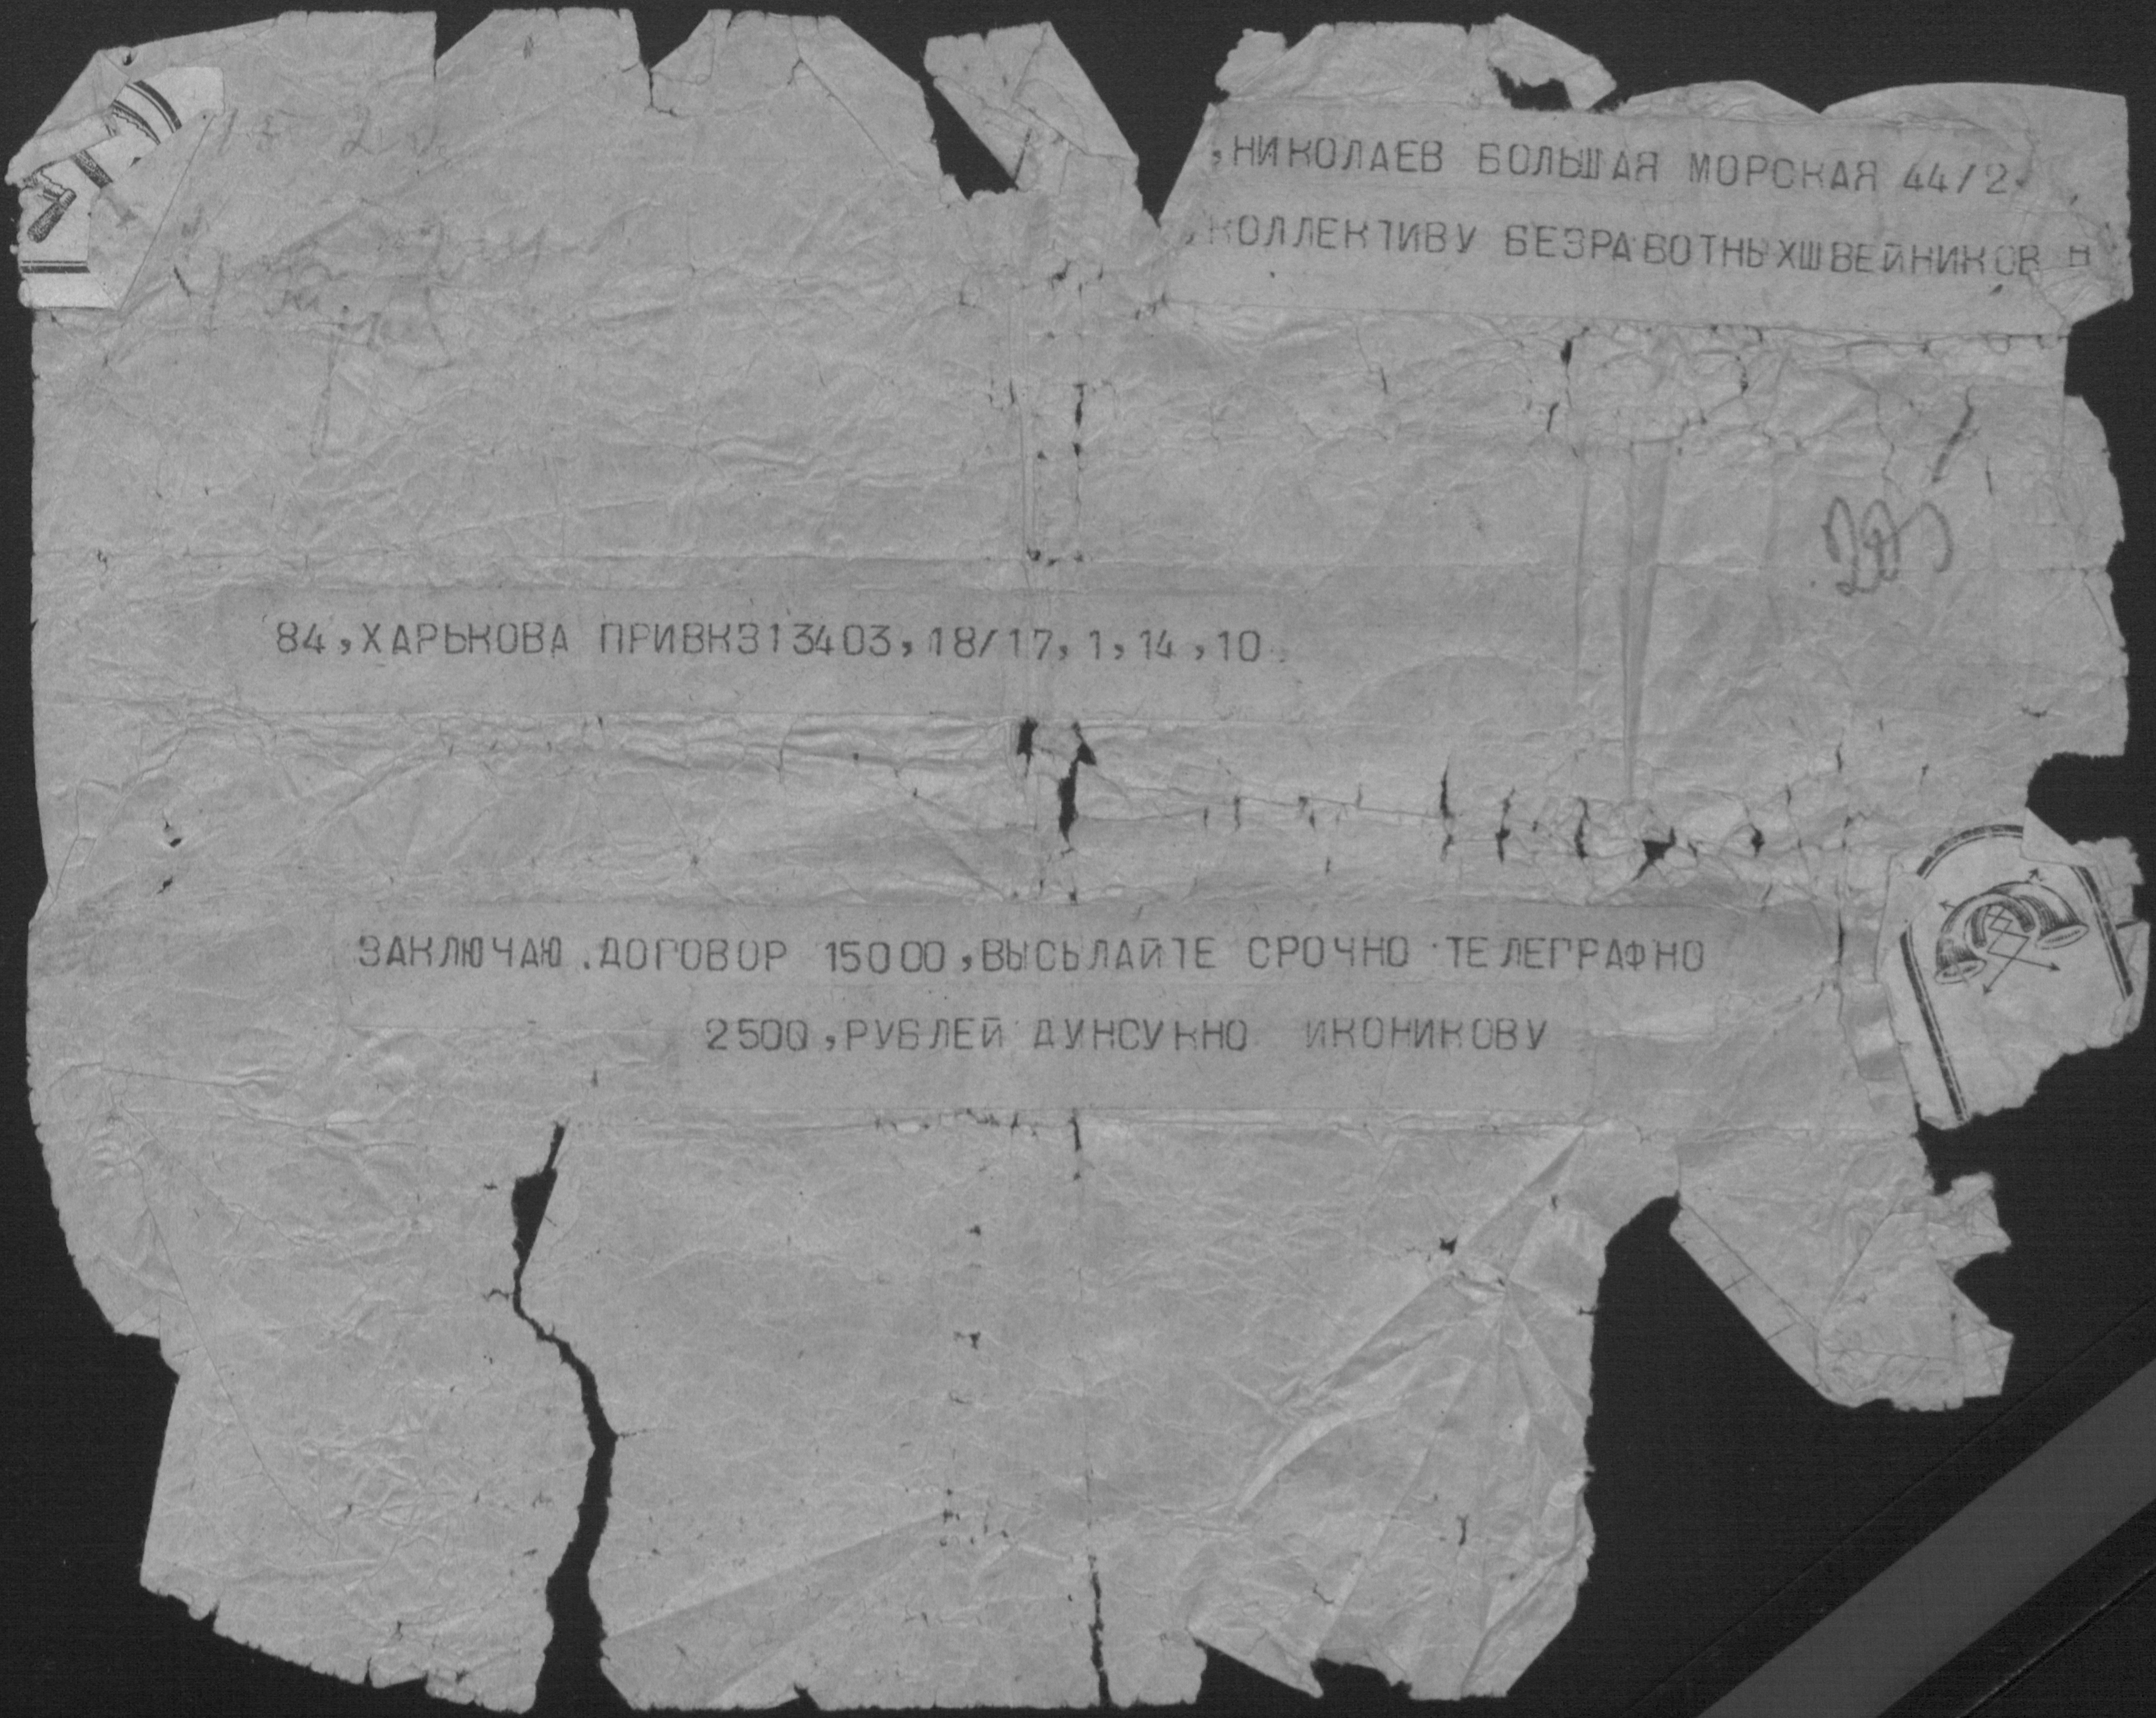 ,НИКОЛАЕВ БОЛЬШАЯ МОРСКАЯ 44/2
,КОЛЛЕКТИВУ БЕЗРАБОТНЬХШВЕЙНИКОВ Н
84,ХАРЬКОВА ПРИВК313403,18/17,1,14,10
ЗАКЛЮЧАЮ.ДОГОВОР 15000,ВЫСЬЛАЙТЕ СРОЧНО ТЕЛЕГРАФНО
2500,РУБЛЕЙ ДУНСУКНО ИКОНИКОВУ